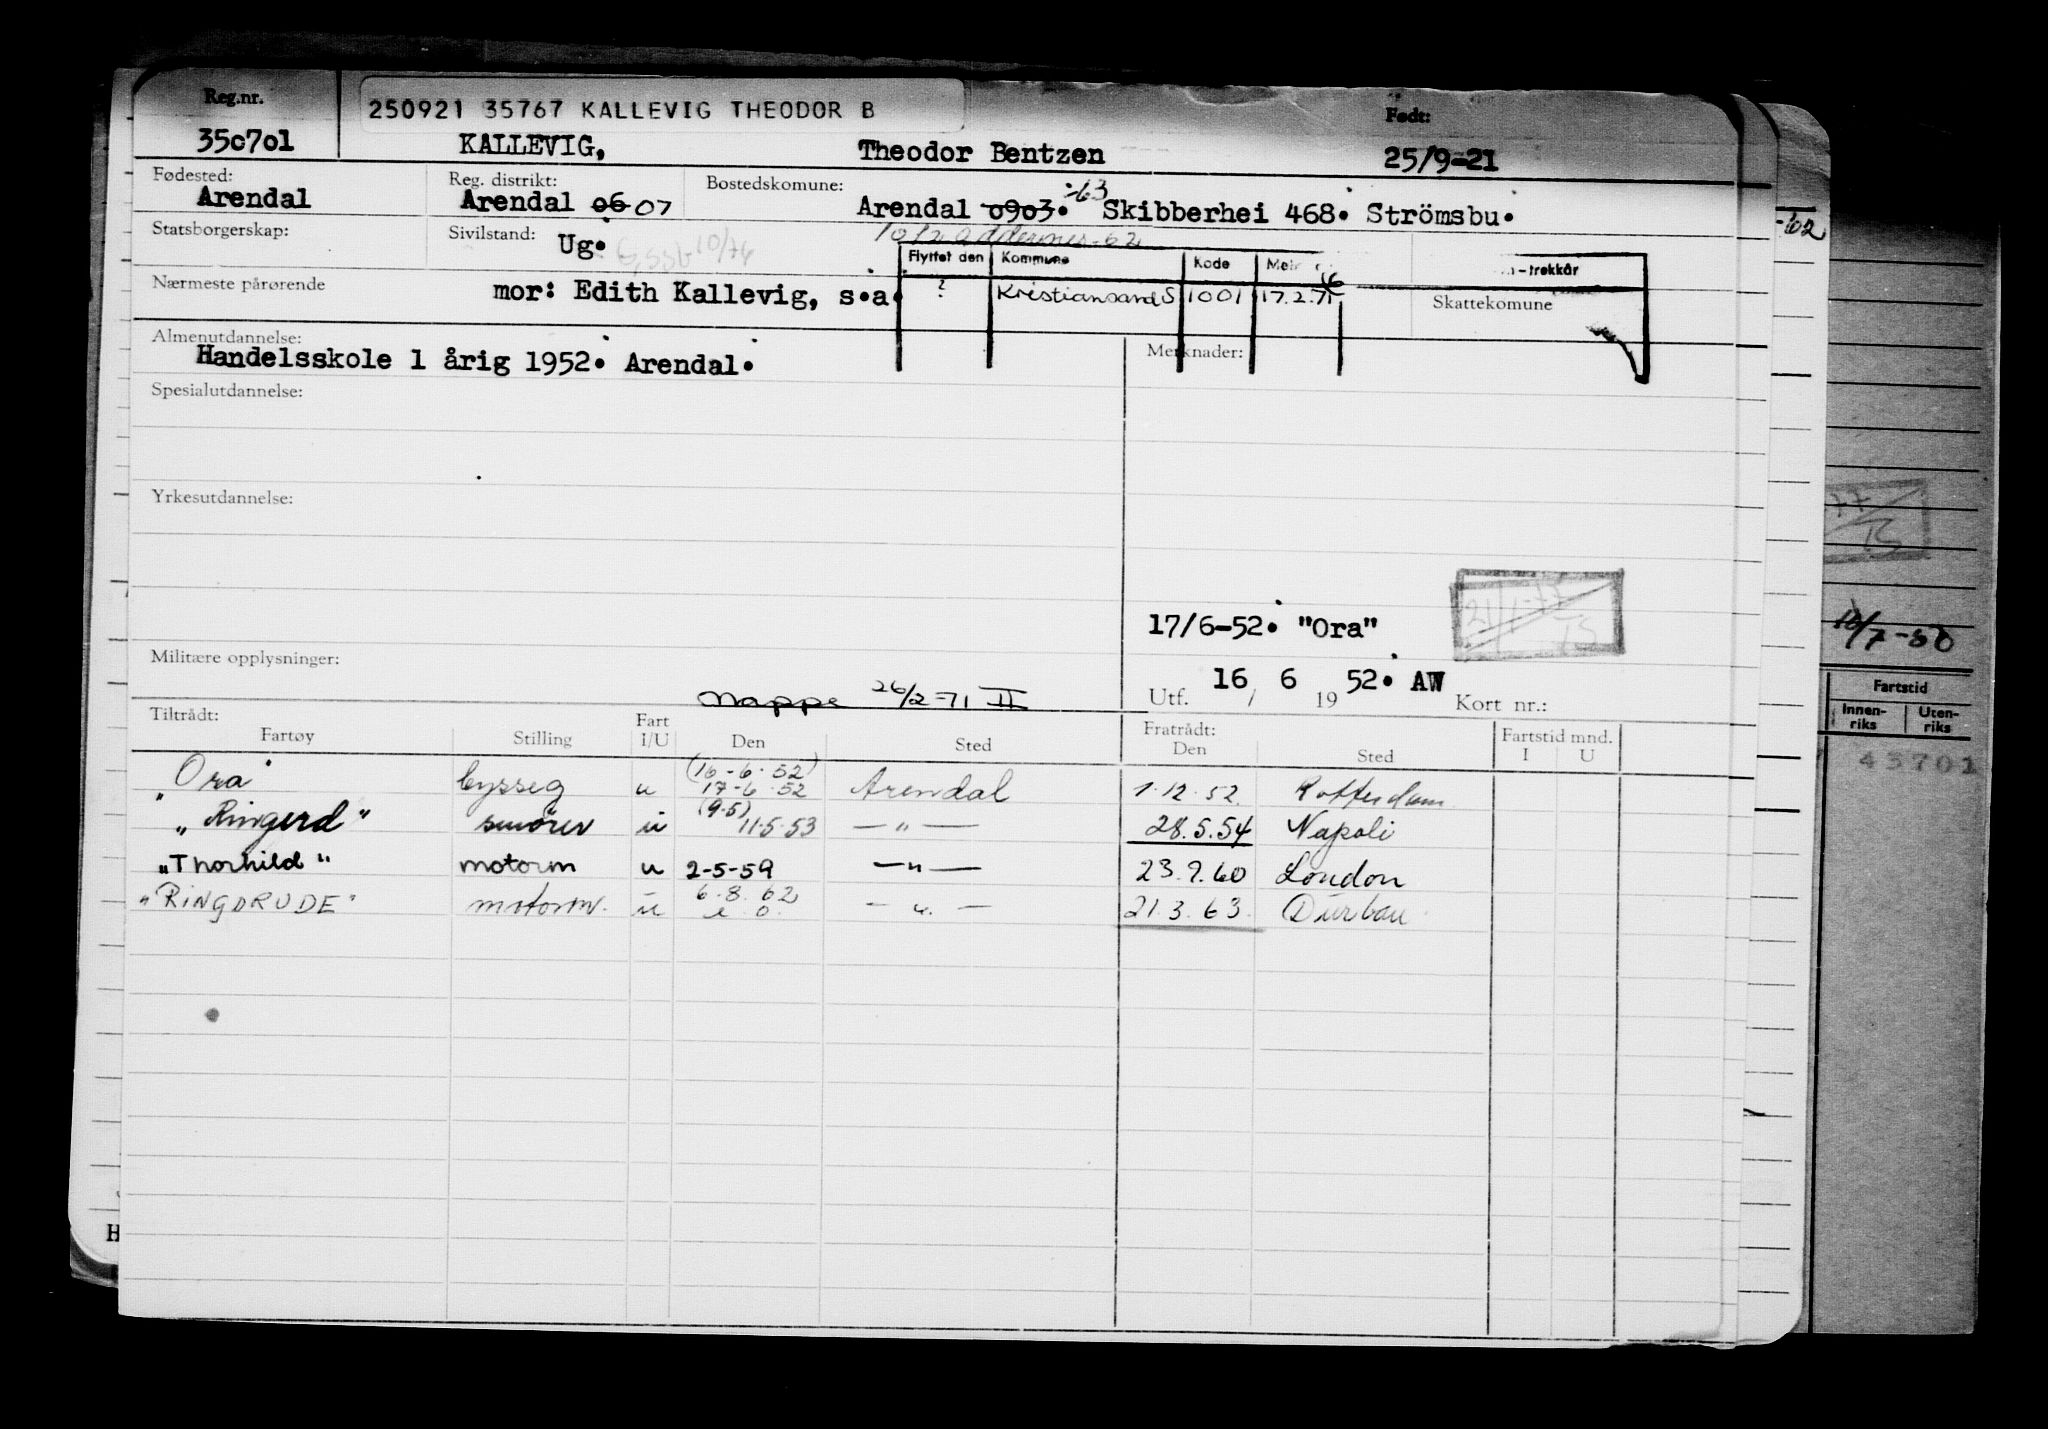 Reg.nr.
250921 35767 KALLEVIG THEODOR B
Født:
35c7o1 KALLEVIG, Theodor Bentzen 25/9-21
Fødested: Reg. distrikt: Bostedskomune: -63
Arendal Arendal 06 07 Arendal 0903. Skibberhei 468. Strömsbu.
-62
Statsborgerskap: Sivilstand: Ug. 10/76
1012 Oddernes-62
Flyttet den Kommune Kode -trekkår
Nærmeste pårørende mor: Edith Kallevig, s.a. ? Kristiansand S 1001 17.2.71 Skattekomune
Almenutdannelse: Merknader:
Handelsskole 1 årig 1952. Arendal.
Spesialutdannelse:
Yrkesutdannelse:
17/6-52. "Ora"
Militære opplysninger:
Mappe 26/2-71 II
Utf. 16/ 6 19 52. AW Kort nr.:
Tiltrådt: Fratrådt:
Fartøy Stilling Fart I/U Den Sted Den Sted Fartstid mnd. I U
Fartstid
Innen-riks Uten-riks
45701
(16-6-52)
"Ora" bysseg u 17-6-52 Arendal 1.12.52. Rotterdam
(9.5)
"Ringerd" smører u 11.5.53 — " — 28.5.54 Napoli
"Thorhild" motorm u 2-5-59 — " — 23.7.60 London
6.8.62
"RINGDRUDE" motorm. u — " — 21.3.63. Durban
H